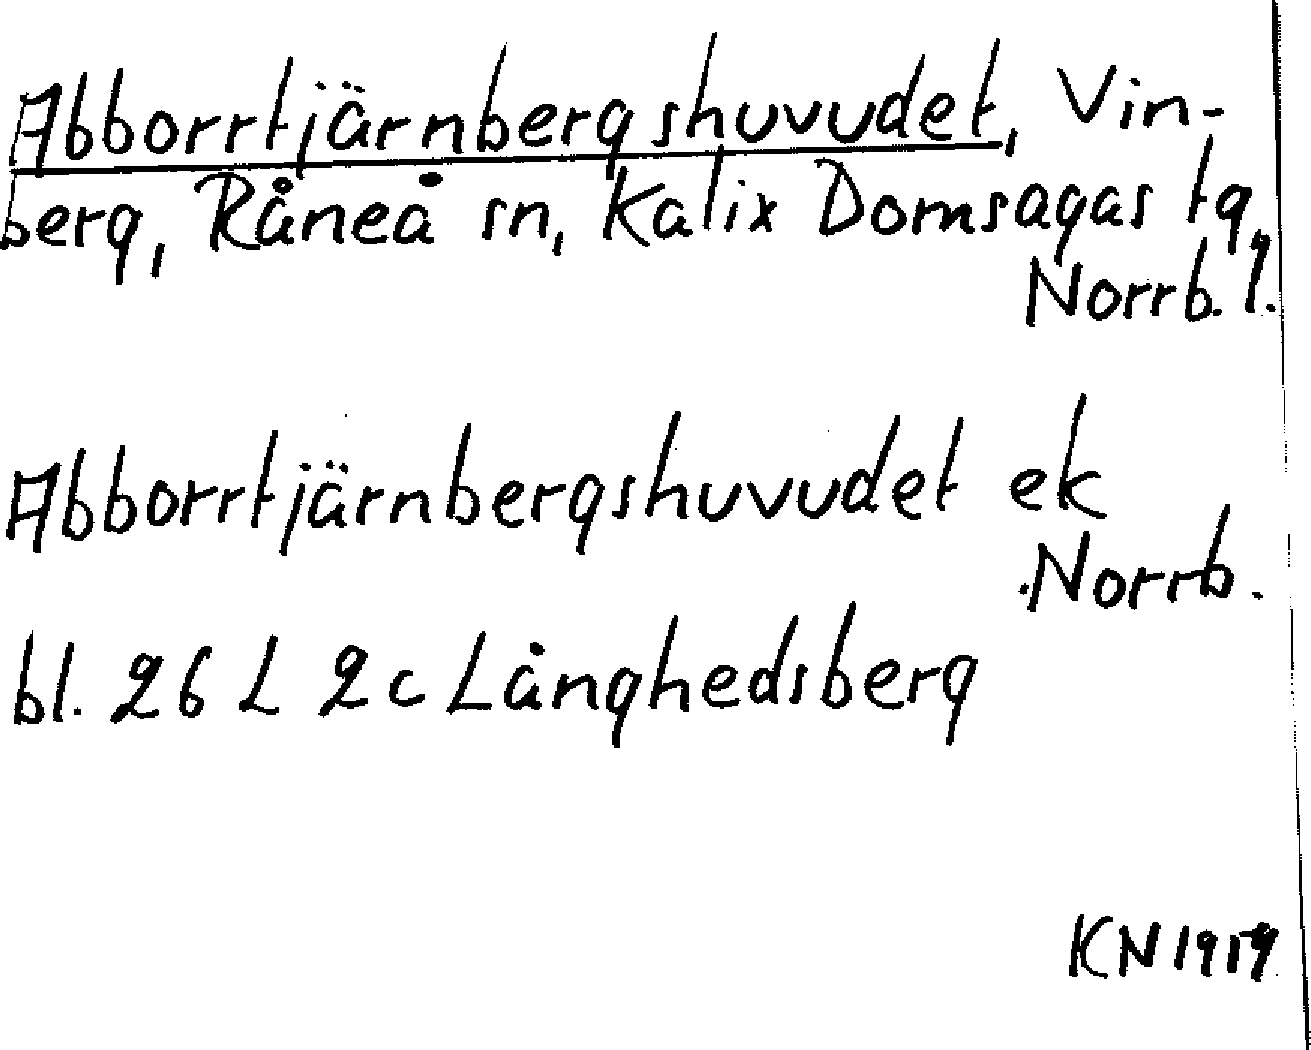 Abborrtjärnbergshuvudet, Vin-
berg, Råneå sn, Kalix Domsagas tg,
Norrb. l.
Abborrtjärnbergshuvudet ek
Norrb.
bl. 26 L 2c Långhedsberg
KN